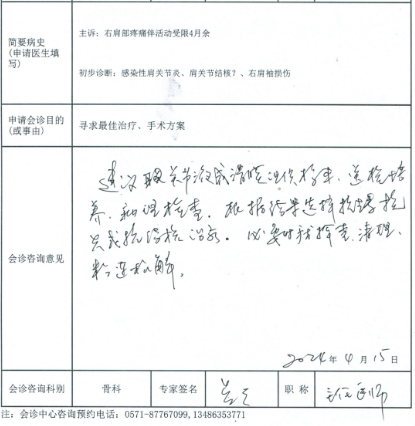 简要病史
(申请医生填
写)
主诉：右肩部疼痛伴活动受限4月余
初步诊断：感染性肩关节炎、肩关节结核？、右肩袖损伤
申请会诊目的
(或事由)
寻求最佳治疗、手术方案
会诊咨询意见
建议取关节液或滑膜组织标本，送检培
养、病理检查。根据结果选择抗
炎或抗结核治疗。必要时行探查、清理、
粘连松解。
2024年4月15日
会诊咨询科别
骨科
专家签名
职称
主任医师
注：会诊中心咨询预约电话：0571-87767099,13486353771